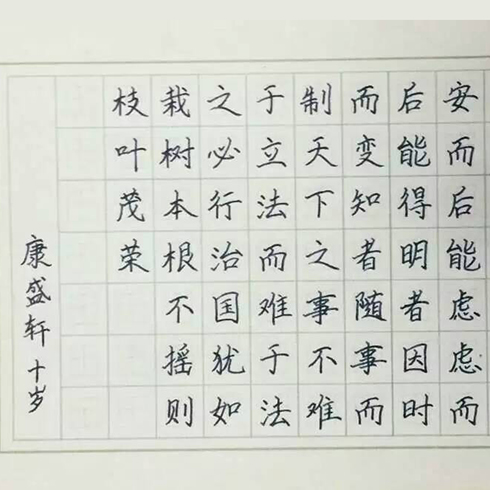 安而后能虑虑而
后能得明者因时
而变知者随事而
制天下之事不难
于立法而难于法
之必行治国犹如
栽树本根不摇则
枝叶茂荣
康盛轩十岁